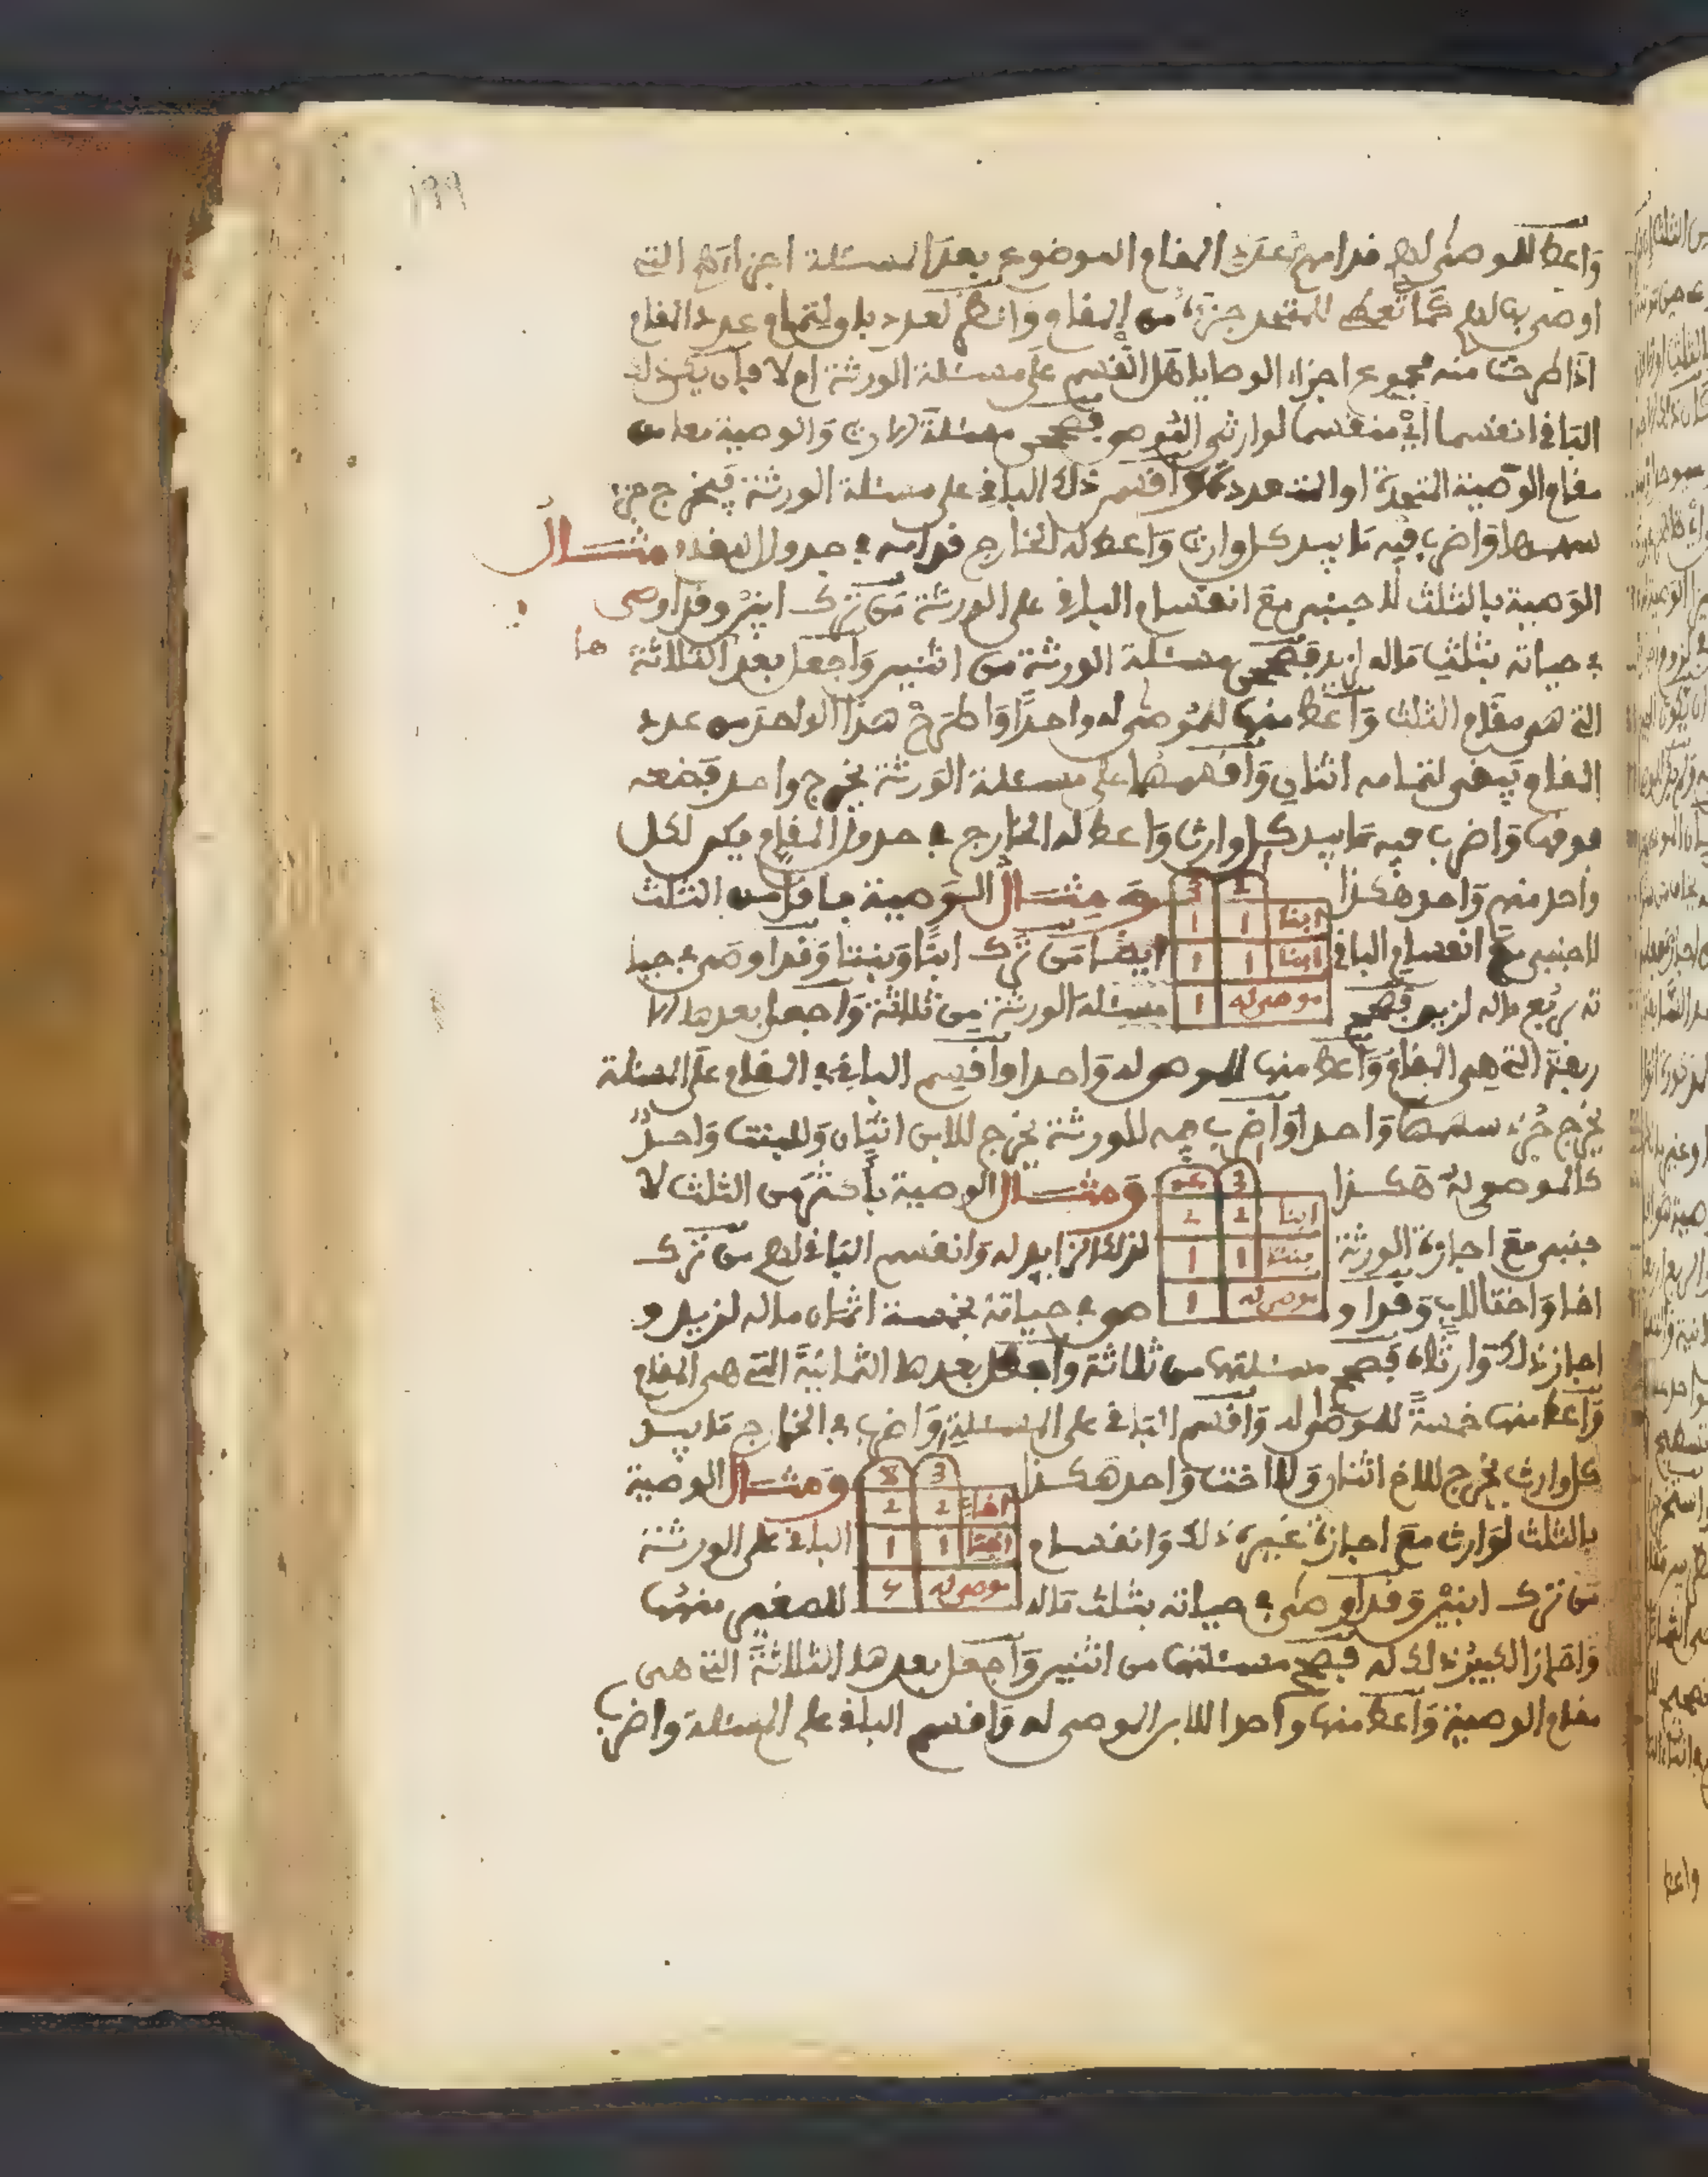 ١٩٩
وأعط للموصى لهم قدامهم بعدد المقام الموضوع بعد المسئلة اجزاءهم التي
اوصى بها لهم كما تعطى للمتحد جزءه من المقام وانظر لعدد باق لتمام عدد المقام
اذا طرحت منه مجموع اجزاء الوصايا هل انقسم على مسئلة الورثة ام لا فإن يكن ذلك
الباقي انقسما أي منقسما لوارثي الموصى فصحح مسئلة الارث والوصية معا من
مقام الوصية المتحدة او المتعددة واقسم ذلك الباقي على مسئلة الورثة فيخرج جزء
سهمها واضرب فيه ما بيد كل وارث واعط له الخارج قدامه في جدول المقام مثال
الوصية بالثلث لاجنبي مع انقسام الباقي على الورثة من ترك ابنين وقد اوصى
في حياته بثلث ماله لزيد فصحح مسئلة الورثة من اثنين واجعل بعد الثلاثة
ها
التي هي مقام الثلث واعط منها للموصى له واحدا واطرح هذا الواحد من عدد
المقام يبقى لتمامه اثنان واقسمها على مسئلة الورثة يخرج واحد فضعه
فوقها واضرب فيه ما بيد كل وارث واعط له الخارج في جدول المقام يكن لكل
واحد منهم واحد هكذا ومثال الوصية باقل من الثلث
1
2 3
ابنا 1 1
ابنا 1 1
موصى له 1
لاجنبي مع انقسام الباقي ايضا من ترك ابنا وبنتا وقد اوصى في حيا
ته بربع ماله لزيد فصحح مسئلة الورثة من ثلاثة واجعل بعدها الا
ربعة التي هي المقام واعط منها للموصى له واحدا واقسم الباقي في المقام على المسئلة
يخرج جزء سهمها واحدا واضرب فيه للورثة يخرج للابن اثنان وللبنت واحد
كالموصى له هكذا ومثال الوصية باكثر من الثلث لا
1
3
ابنا 2 2
بنتا 1 1
موصى له 1
جنبي مع اجازة الورثة لذلك الزايد له وانقسم الباقي لهم من ترك
اخا واختا لاب وقد او صى في حياته بخمسة اثمان ماله لزيد و
اجاز ذلك وارثاه فصحح مسئلتها من ثلاثة واجعل بعدها الثمانية التي هي المقام
واعط منها خمسة للموصى له واقسم الباقي على المسئلة واضرب في الخارج ما بيد
كل وارث يخرج للاخ اثنان وللاخت واحد هكذا ومثال الوصية
1
3 8
اخا 2 2
اختا 1 1
موصى له
بالثلث لوارث مع اجازة غيره ذلك وانقسام الباقي على الورثة
من ترك ابنين وقد اوصى في حياته بثلث ماله للصغير منهما
واجاز الكبير ذلك له فصحح مسئلتها من اثنين واجعل بعدها الثلاثة التي هي
مقام الوصية واعط منها واحدا للابن الموصى له واقسم الباقي على المسئلة واضرب